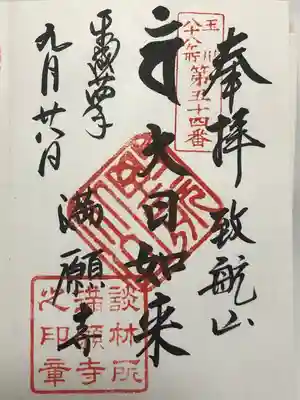 奉拝
致航山
玉川
八十八ヶ所
第五十四番
大日如来
満願寺
九月廿八日
談林所
満願寺
之印章